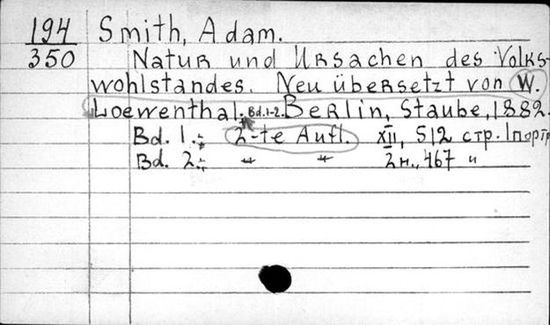 194 Smith, Adam.
350 Natur und Ursachen des Volks-
wohlstandes. Neu übersetzt von W.
Loewenthal. Bd.1-2. Berlin, Staube, 1882.
Bd. 1.; 2-te Aufl. XII, 512 стр. 1портр
Bd. 2.; " " 2н., 467 "